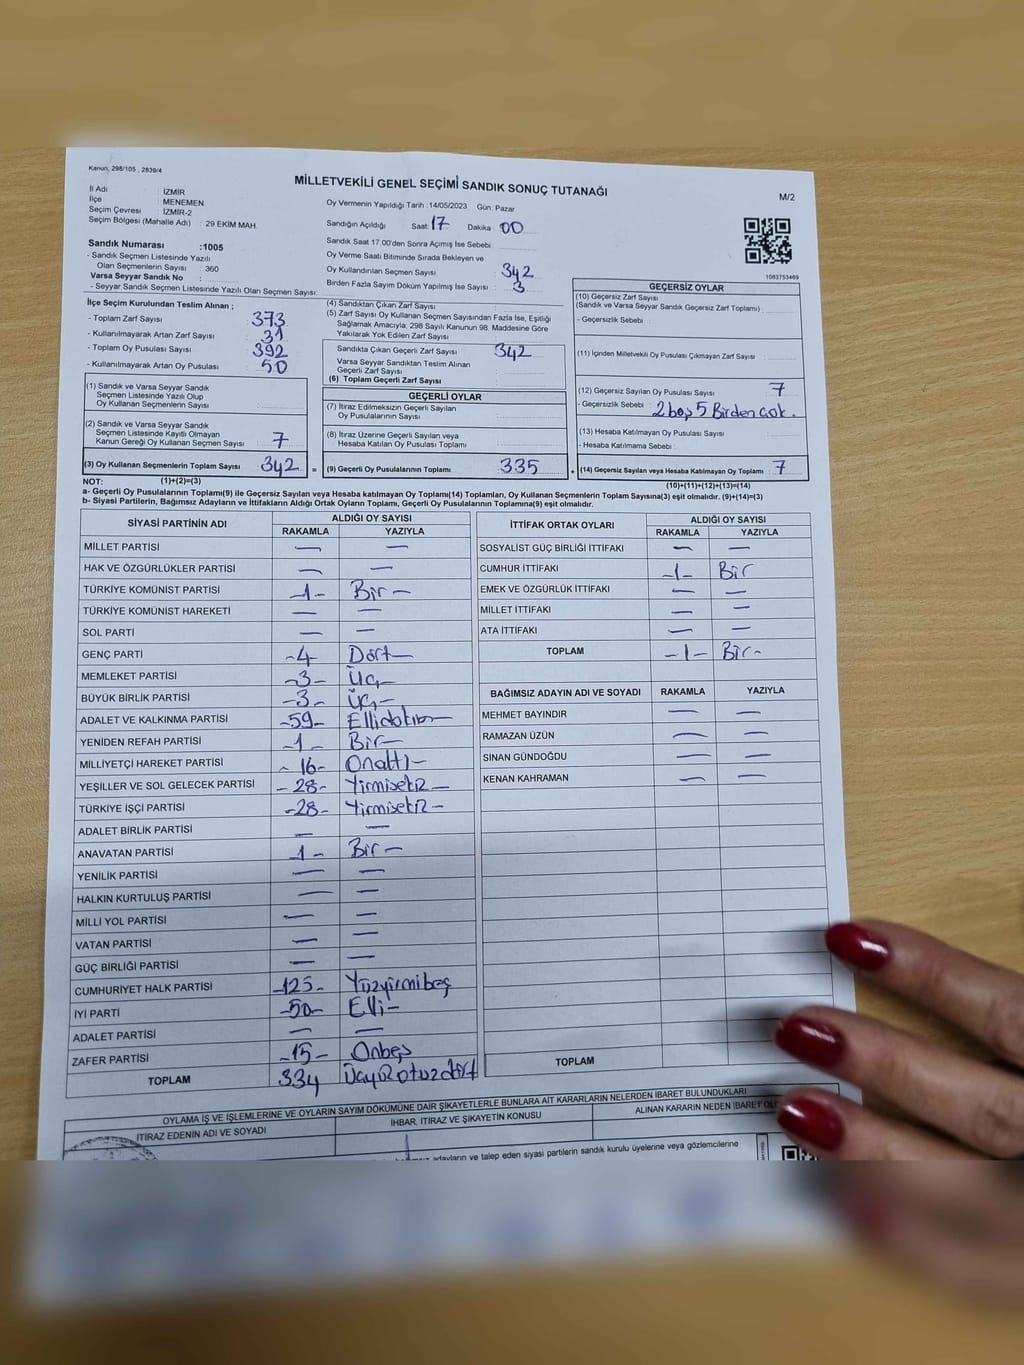 Kanun, 298/105 , 2839/4
MİLLETVEKİLİ GENEL SEÇİMİ SANDIK SONUÇ TUTANAĞI
M/2
İl Adı : İZMİR
İlçe : MENEMEN
Seçim Çevresi : İZMİR-2
Seçim Bölgesi (Mahalle Adı) : 29 EKİM MAH.
Oy Vermenin Yapıldığı Tarih :14/05/2023 Gün: Pazar
Sandığın Açıldığı Saat: 17 Dakika 00
Sandık Saat 17.00'den Sonra Açımış İse Sebebi
Oy Verme Saati Bitiminde Sırada Bekleyen ve
Oy Kullandırılan Seçmen Sayısı 342
Birden Fazla Sayım Döküm Yapılmış İse Sayısı : 3
1083753469
Sandık Numarası :1005
- Sandık Seçmen Listesinde Yazılı
Olan Seçmenlerin Sayısı : 360
Varsa Seyyar Sandık No :
- Seyyar Sandık Seçmen Listesinde Yazılı Olan Seçmen Sayısı:
İlçe Seçim Kurulundan Teslim Alınan ;
- Toplam Zarf Sayısı 373
- Kullanılmayarak Artan Zarf Sayısı 31
- Toplam Oy Pusulası Sayısı 392
- Kullanılmayarak Artan Oy Pusulası 50
(1) Sandık ve Varsa Seyyar Sandık
Seçmen Listesinde Yazılı Olup
Oy Kullanan Seçmenlerin Sayısı
(2) Sandık ve Varsa Seyyar Sandık
Seçmen Listesinde Kayıtlı Olmayan
Kanun Gereği Oy Kullanan Seçmen Sayısı 7
(3) Oy Kullanan Seçmenlerin Toplam Sayısı 342
(4) Sandıktan Çıkan Zarf Sayısı
(5) Zarf Sayısı Oy Kullanan Seçmen Sayısından Fazla İse, Eşitliği
Sağlamak Amacıyla; 298 Sayılı Kanunun 98. Maddesine Göre
Yakılarak Yok Edilen Zarf Sayısı
Sandıkta Çıkan Geçerli Zarf Sayısı 342
Varsa Seyyar Sandıktan Teslim Alınan
Geçerli Zarf Sayısı
(6) Toplam Geçerli Zarf Sayısı
GEÇERLİ OYLAR
(7) İtiraz Edilmeksizin Geçerli Sayılan
Oy Pusulalarının Sayısı
(8) İtiraz Üzerine Geçerli Sayılan veya
Hesaba Katılan Oy Pusulası Toplamı
= (9) Geçerli Oy Pusulalarının Toplamı 335
GEÇERSİZ OYLAR
(10) Geçersiz Zarf Sayısı
(Sandık ve Varsa Seyyar Sandık Geçersiz Zarf Toplamı) :
- Geçersizlik Sebebi :
(11) İçinden Milletvekili Oy Pusulası Çıkmayan Zarf Sayısı
(12) Geçersiz Sayılan Oy Pusulası Sayısı 7
- Geçersizlik Sebebi : 2 boş 5 Birden çok.
(13) Hesaba Katılmayan Oy Pusulası Sayısı
- Hesaba Katılmama Sebebi :
+ (14) Geçersiz Sayılan veya Hesaba Katılmayan Oy Toplamı 7
NOT: (1)+(2)=(3)
(10)+(11)+(12)+(13)=(14)
a- Geçerli Oy Pusulalarının Toplamı(9) ile Geçersiz Sayılan veya Hesaba katılmayan Oy Toplamı(14) Toplamları, Oy Kullanan Seçmenlerin Toplam Sayısına(3) eşit olmalıdır. (9)+(14)=(3)
b- Siyasi Partilerin, Bağımsız Adayların ve İttifakların Aldığı Ortak Oyların Toplamı, Geçerli Oy Pusulalarının Toplamına(9) eşit olmalıdır.
SİYASİ PARTİNİN ADI ALDIĞI OY SAYISI
RAKAMLA YAZIYLA
MİLLET PARTİSİ — —
HAK VE ÖZGÜRLÜKLER PARTİSİ — —
TÜRKİYE KOMÜNİST PARTİSİ -1- Bir -
TÜRKİYE KOMÜNİST HAREKETİ — —
SOL PARTİ — —
GENÇ PARTİ -4 Dört—
MEMLEKET PARTİSİ -3- Üç-
BÜYÜK BİRLİK PARTİSİ -3- Üç-
ADALET VE KALKINMA PARTİSİ -59- Ellidokuz—
YENİDEN REFAH PARTİSİ -1- Bir-
MİLLİYETÇİ HAREKET PARTİSİ - 16- Onaltı-
YEŞİLLER VE SOL GELECEK PARTİSİ - 28- Yirmisekiz—
TÜRKİYE İŞÇİ PARTİSİ -28- Yirmisekiz-
ADALET BİRLİK PARTİSİ — —
ANAVATAN PARTİSİ -1- Bir-
YENİLİK PARTİSİ — —
HALKIN KURTULUŞ PARTİSİ — —
MİLLİ YOL PARTİSİ — —
VATAN PARTİSİ — —
GÜÇ BİRLİĞİ PARTİSİ — —
CUMHURİYET HALK PARTİSİ -125- Yüzyirmibeş
İYİ PARTİ -50- Elli-
ADALET PARTİSİ — —
ZAFER PARTİSİ -15- Onbeş
TOPLAM 334 Üçyüzotuzdört
İTTİFAK ORTAK OYLARI ALDIĞI OY SAYISI
RAKAMLA YAZIYLA
SOSYALİST GÜÇ BİRLİĞİ İTTİFAKI — —
CUMHUR İTTİFAKI -1- Bir
EMEK VE ÖZGÜRLÜK İTTİFAKI — —
MİLLET İTTİFAKI — —
ATA İTTİFAKI — —
TOPLAM -1- Bir-
BAĞIMSIZ ADAYIN ADI VE SOYADI RAKAMLA YAZIYLA
MEHMET BAYINDIR — —
RAMAZAN ÜZÜN — —
SİNAN GÜNDOĞDU — —
KENAN KAHRAMAN — —
TOPLAM
OYLAMA İŞ VE İŞLEMLERİNE VE OYLARIN SAYIM DÖKÜMÜNE DAİR ŞİKAYETLERLE BUNLARA AİT KARARLARIN NELERDEN İBARET BULUNDUKLARI
İTİRAZ EDENİN ADI VE SOYADI
İHBAR, İTİRAZ VE ŞİKAYETİN KONUSU
ALINAN KARARIN NEDEN İBARET
adayların ve talep eden siyasi partilerin sandık kurulu üyelerine veya gözlemcilerine